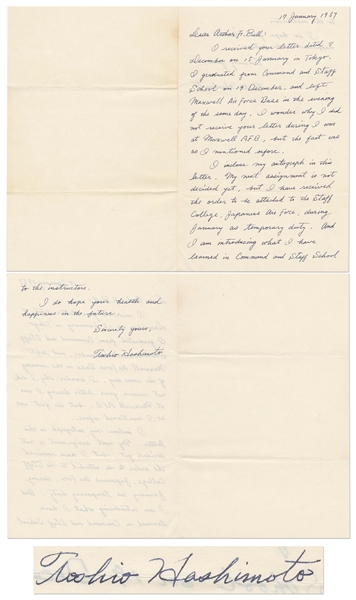 19 January 1957
Dear Arthur F. Bull:
I received your letter dated 8
December on 15 January in Tokyo.
I graduated from Command and Staff
School on 19 December, and left
Maxwell Air Force Base in the evening
of the same day. I wonder why I did
not receive your letter during I was
at Maxwell AFB, but the fact was
as I mentioned before.
I inclose my autograph in this
letter. My next assignment is not
decided yet, but I have received
the order to be attached to the Staff
College, Japanese Air Force, during
January as temporary duty. And
I am introducing what I have
learned in Command and Staff School
to the instructors.
I do hope your health and
happiness in the future.
Sincerely yours,
Toshio Hashimoto
Toshio Hashimoto